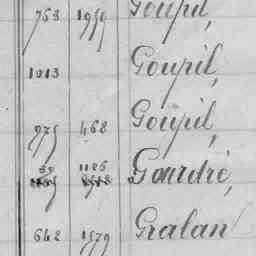 763 1959 Goupil,
1013 Goupil,
975 468 Goupil,
59 1126
Gourdré,
642 1579 Gralan